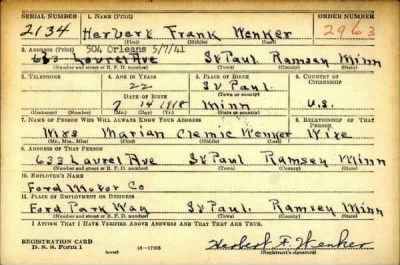 SERIAL NUMBER 1. NAME (Print) ORDER NUMBER
2134 Herbert Frank Wenker 2963
(First) (Middle) (Last)
2. ADDRESS (Print) 504 Orleans 5/7/41
633 Laurel Ave St Paul Ramsey Minn
(Number and street or R. F. D. number) (Town) (County) (State)
3. TELEPHONE 4. AGE IN YEARS 5. PLACE OF BIRTH 6. COUNTRY OF CITIZENSHIP
22 St Paul
DATE OF BIRTH (Town or county)
7 14 1918 Minn U.S.
(Exchange) (Number) (Mo.) (Day) (Yr.) (State or country)
7. NAME OF PERSON WHO WILL ALWAYS KNOW YOUR ADDRESS 8. RELATIONSHIP OF THAT PERSON
Mrs Marian Wenker Wife
(Mr., Mrs., Miss) (First) (Middle) (Last)
9. ADDRESS OF THAT PERSON
633 Laurel Ave St Paul Ramsey Minn
(Number and street or R. F. D. number) (Town) (County) (State)
10. EMPLOYER'S NAME
Ford Motor Co
11. PLACE OF EMPLOYMENT OR BUSINESS
Ford Park Way St Paul Ramsey Minn
(Number and street or R. F. D. number) (Town) (County) (State)
I AFFIRM THAT I HAVE VERIFIED ABOVE ANSWERS AND THAT THEY ARE TRUE.
REGISTRATION CARD
D. S. S. Form 1 Herbert F. Wenker
(Registrant's signature)